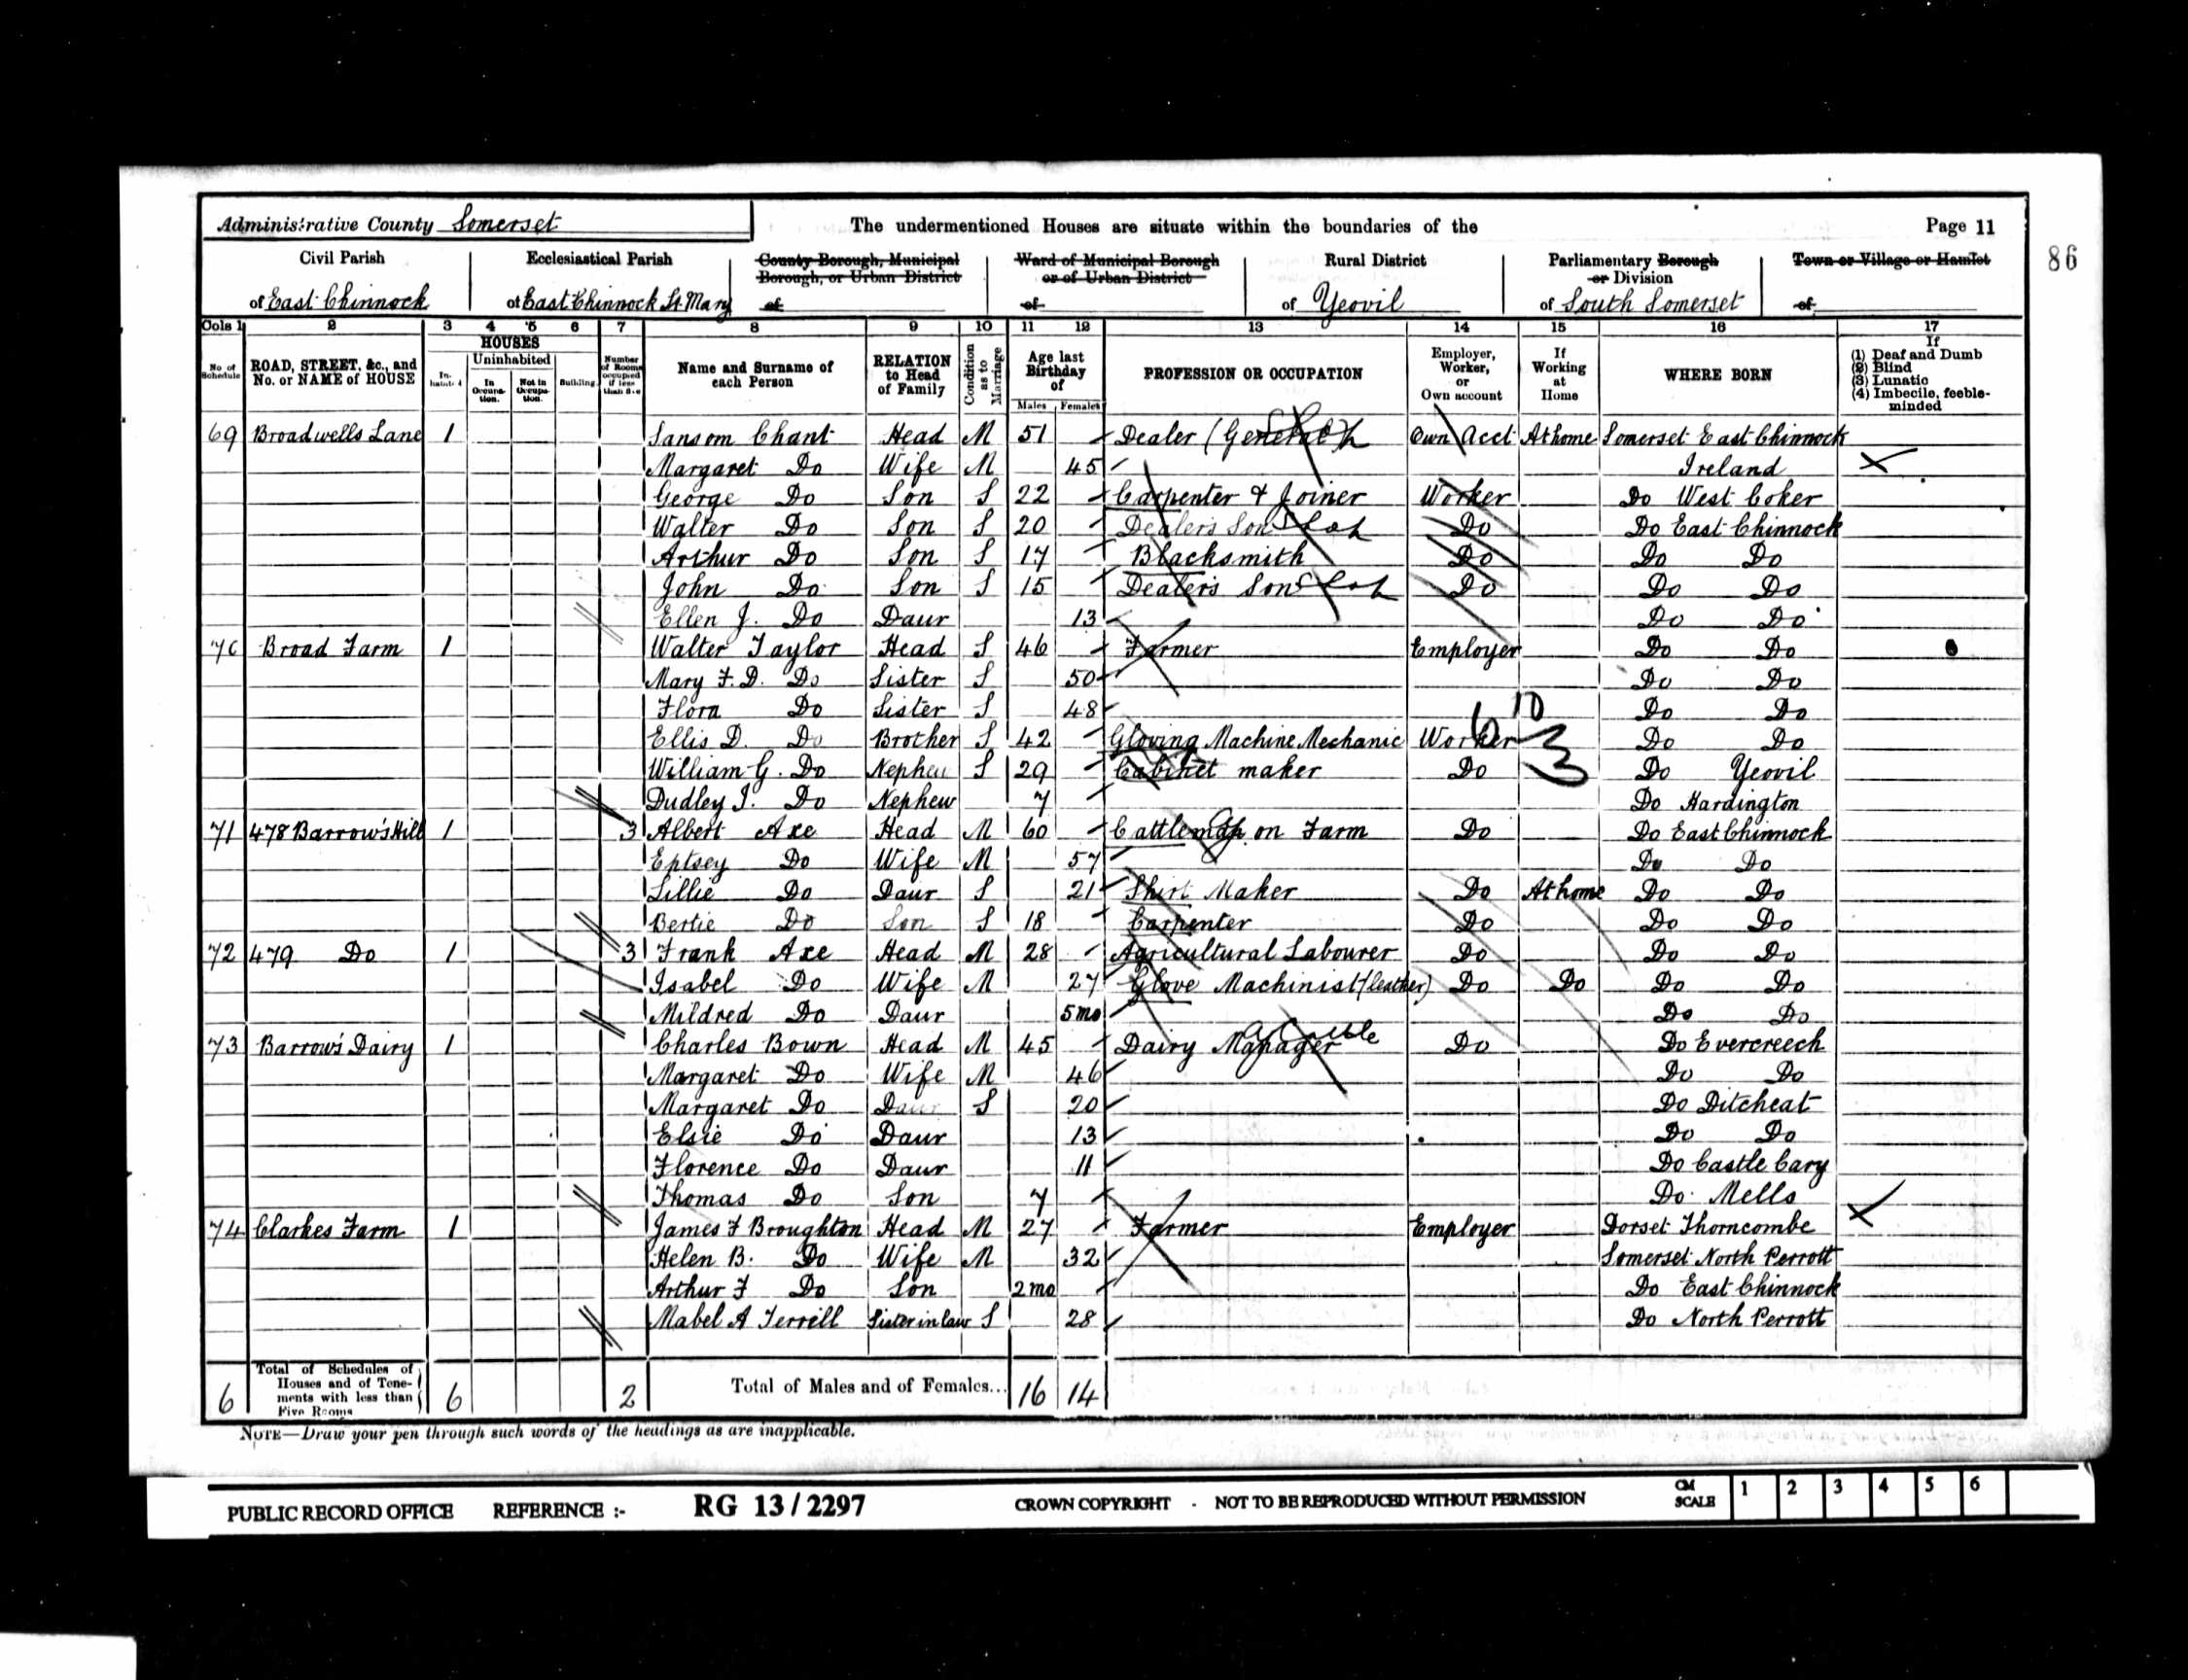 Administrative County Somerset The undermentioned Houses are situate within the boundaries of the Page 11
86
Civil Parish Ecclesiastical Parish County Borough, Municipal Borough, or Urban District Ward of Municipal Borough or of Urban District Rural District Parliamentary Borough or Division Town or Village or Hamlet
of East Chinnock of East Chinnock St. Mary of of of Yeovil of South Somerset of
Cols 1 2 3 4 5 6 7 8 9 10 11 12 13 14 15 16 17
No. of Schedule ROAD, STREET, &c., and No. or NAME of HOUSE HOUSES Inhabited Uninhabited In Occupation. Not in Occupation. Building. Number of Rooms occupied if less than five Name and Surname of each Person RELATION to Head of Family Condition as to Marriage Age last Birthday of Males Females PROFESSION OR OCCUPATION Employer, Worker, or Own account If Working at Home WHERE BORN If (1) Deaf and Dumb (2) Blind (3) Lunatic (4) Imbecile, feeble-minded
69 Broadwells Lane 1 Sansom Chant Head M 51 Dealer (General) Own Acct At home Somerset East Chinnock
Margaret Do Wife M 45 Ireland
George Do Son S 22 Carpenter & Joiner Worker Do West Coker
Walter Do Son S 20 Dealers Son Do Do East Chinnock
Arthur Do Son S 17 Blacksmith Do Do Do
John Do Son S 15 Dealer's Son Do Do Do
Ellen J. Do Daur 13 Do Do
70 Broad Farm 1 Walter Taylor Head S 46 Farmer Employer Do Do
Mary F. D. Do Sister S 50 Do Do
Flora Do Sister S 48 Do Do
Ellis D. Do Brother S 42 Gloving Machine Mechanic Worker Do Do
William G. Do Nephew S 29 Cabinet maker Do Do Yeovil
Dudley J. Do Nephew 7 Do Hardington
71 478 Barrow's Hill 1 3 Albert Axe Head M 60 Cattleman on Farm Do Do East Chinnock
Eptsey Do Wife M 57 Do Do
Lillie Do Daur S 21 Shirt Maker Do At home Do Do
Bertie Do Son S 18 Carpenter Do Do Do
72 479 Do 1 3 Frank Axe Head M 28 Agricultural Labourer Do Do Do
Isabel Do Wife M 27 Glove Machinist (leather) Do Do Do Do
Mildred Do Daur 5 mo Do Do
73 Barrow's Dairy 1 Charles Bown Head M 45 Dairy Manager Do Do Evercreech
Margaret Do Wife M 46 Do Do
Margaret Do Daur S 20 Do Ditcheat
Elsie Do Daur 13 Do Do
Florence Do Daur 11 Do Castle Cary
Thomas Do Son 7 Do Mells
74 Clarkes Farm 1 James F Broughton Head M 27 Farmer Employer Dorset Thorncombe
Helen B. Do Wife M 32 Somerset North Perrott
Arthur F Do Son 2 mo Do East Chinnock
Mabel A Terrell Sister in law S 28 Do North Perrott
6 Total of Schedules of Houses and of Tenements with less than Five Rooms 6 2 Total of Males and of Females... 16 14
NOTE—Draw your pen through such words of the headings as are inapplicable.
PUBLIC RECORD OFFICE REFERENCE :- RG 13/2297 CROWN COPYRIGHT - NOT TO BE REPRODUCED WITHOUT PERMISSION CM SCALE 1 2 3 4 5 6